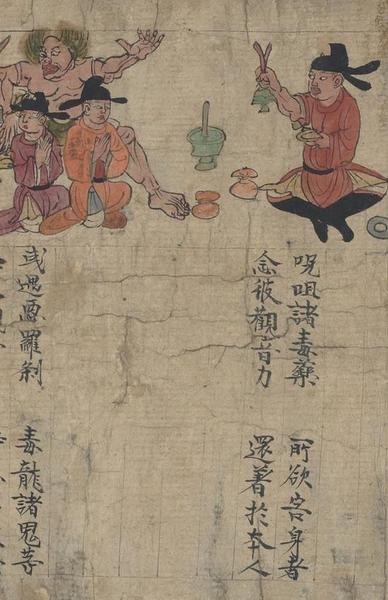 呪咀諸毒藥 所欲害身者
念彼觀音力 還著扵本人
或遇惡羅刹 毒龍諸鬼等